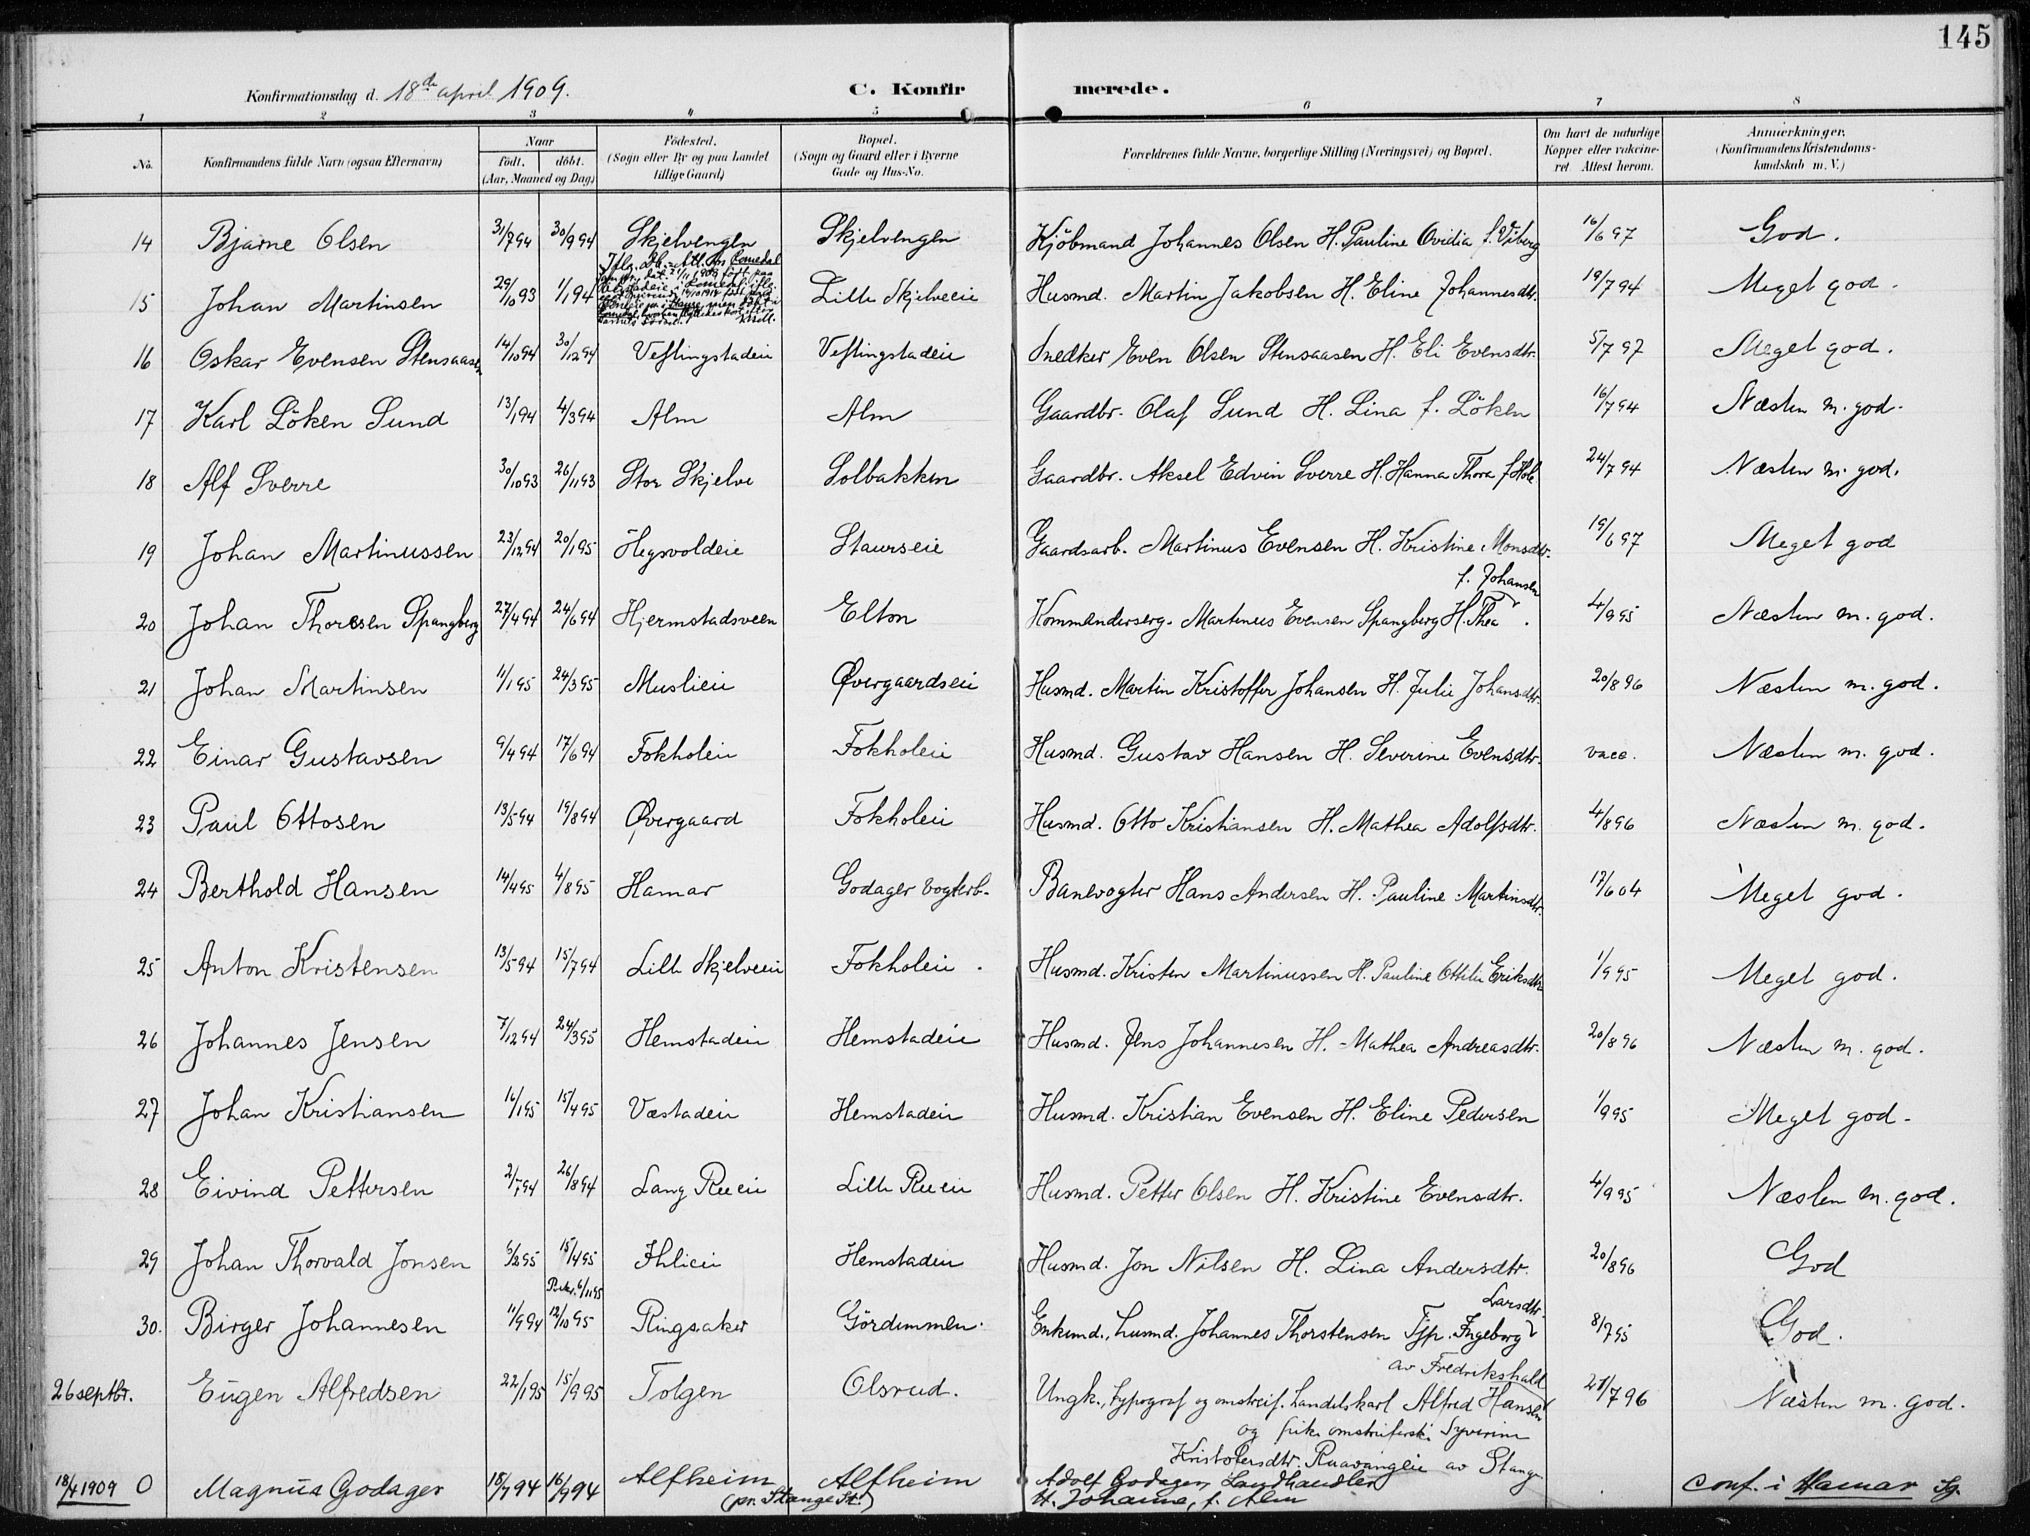 145
Konfirmationsdag d. 18de april 1909.
C. Konfirmerede.
1 2 3 4 5 6 7 8
No. Konfirmandens fulde Navn (ogsaa Efternavn) Naar født, døbt. (Aar, Maaned og Dag) Födested. (Sogn eller By og paa Landet tillige Gaard) Bopæl. (Sogn og Gaard eller i Byerne Gade og Hus-No. Forældrenes fulde Navne, borgerlige Stilling (Næringsvei) og Bopæl. Om havt de naturlige Kopper eller vakcineret. Attest herom. Anmærkninger. (Konfirmandens Kristendomskundskab m. V.)
14 Bjarne Olsen 31/7 94 30/9 94 Skjelvengen Skjelvengen Kjöbmand Johannes Olsen H. Pauline Ovidia f. Viberg 16/6 97 God.
15 Johan Martinsen 29/10 93 1/1 94 Lille Skjelveeie Husmd. Martin Jakobsen H. Eline Johannesdtr. 19/7 94 Meget god.
16 Oskar Evensen Stensaasen 14/10 94 30/12 94 Veflingstadeie Veflingstadeie Snedker Even Olsen Stensaasen H. Eli Evensdtr. 5/7 97 Meget god.
17 Karl Löken Sund 13/1 94 4/3 94 Alm Alm Gaardbr. Olaf Sund H. Lina f. Löken 16/7 94 Næsten m. god.
18 Alf Sverre 30/10 93 26/11 93 Stor Skjelve Solbakken Gaardbr. Aksel Edvin Sverre H. Hanna Thora f. Hole 24/7 94 Næsten m. god.
19 Johan Martinussen 23/12 94 20/1 95 Hegsvoldeie Staurseie Gaardsarb. Martinus Evensen H. Kristine Monsdtr. 19/6 97 Meget god
20 Johan Thoresen Spangberg 27/4 94 24/6 94 Hjermstadsveen Elton Kommenderserg. Martinus Evensen Spangberg H. Thea f. Johansen. 4/9 95 Næsten m. god.
21 Johan Martinsen 11/1 95 24/3 95 Muslieie Øvergaardseie Husmd. Martin Kristoffer Johansen H. Julie Johansdtr. 20/8 96 Næsten m. god.
22 Einar Gustavsen 9/4 94 17/6 94 Fokholeie Fokholeie Husmd. Gustav Hansen H. Severine Evensdtr. vacc. Næsten m. god.
23 Paul Ottosen 13/5 94 19/8 94 Øvergaard Fokholeie Husmd. Otto Kristiansen H. Mathea Adolfsdtr. 4/8 96 Næsten m. god.
24 Berthold Hansen 14/4 95 4/8 95 Hamar Godager Vogterb. Banevogter Hans Andersen H. Pauline Martinsdtr. 17/6 04 Meget god.
25 Anton Kristensen 13/5 94 15/7 94 Lille Skjelveeie Fokholeie. Husmd. Kristen Martinussen H. Pauline Ottilie Eriksdtr. 1/9 95 Meget god.
26 Johannes Jensen 7/12 94 24/3 95 Hemstadeie Hemstadeie Husmd. Jens Johannesen H. Mathea Andreasdtr. 20/8 96 Næsten m. god.
27 Johan Kristiansen 16/1 95 15/4 95 Væstadeie Hemstadeie Husmd. Kristian Evensen H. Eline Pedersen 1/9 95 Meget god.
28 Eivind Pettersen 2/7 94 26/8 94 Lang Rueeie Lille Rueeie Husmd. Petter Olsen H. Kristine Evensdtr. 4/9 95 Næsten m. god.
29 Johan Thorvald Jonsen 6/2 95 15/4 95 Ihlieie Hemstadeie Husmd. Jon Nilsen H. Lina Andersdtr. 20/8 96 God
30. Birger Johannesen 11/9 94 12/10 95 Ringsaker Gördemmen. Enkemd., husmd. Johannes Thorstensen Tjp. Ingeborg Larsdtr. 8/7 95 God.
26 septbr. Eugen Alfredsen 22/1 95 15/9 95 Tolgen Olsrud. Ungk., typograf og omstreif. handelskarl Alfred Hansen av Fredrikshald 21/7 96 Næsten m. god.
og pike omstreiferske Syverine
Kristofersdtr. Ruavangeie av Stange
18/4 1909 O Magnus Godager 18/7 94 16/9 94 Alfheim (pr. Stange St.) Alfheim Adolf Godager, Landhandler conf. i Hamar Sg.
H. Johanne, f. Alm